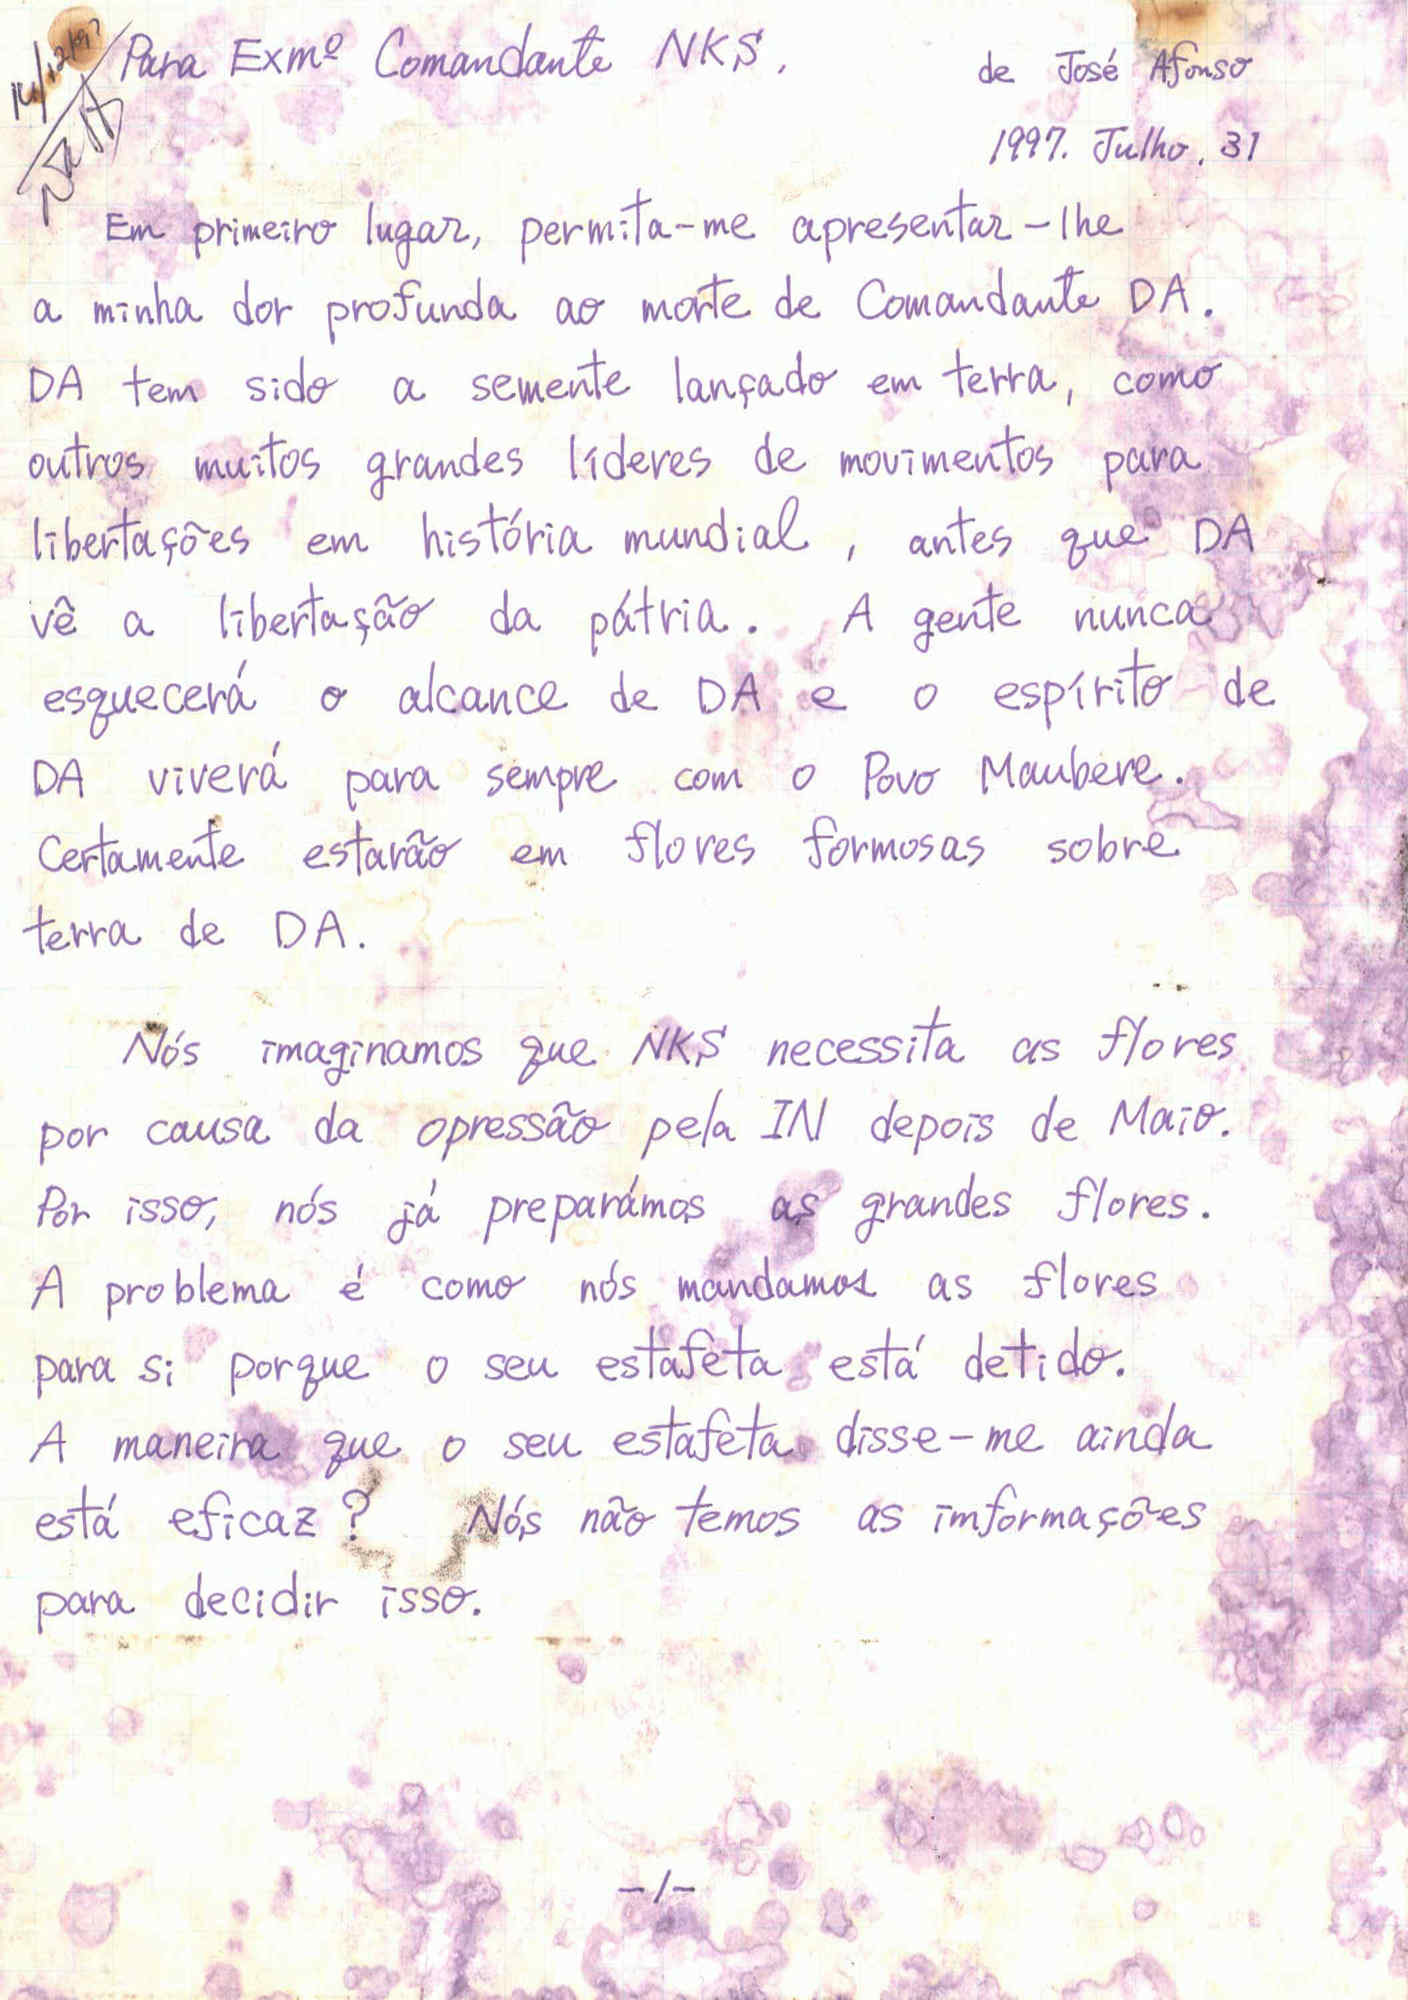 14/12/97
Para Exmº Comandante NKS.
de José Afonso
1997. Julho. 31
Em primeiro lugar, permita-me apresentar-lhe
a minha dor profunda ao morte de Comandante DA.
DA tem sido a semente lançado em terra, como
outros muitos grandes líderes de movimentos para
libertações em história mundial, antes que DA
vê a libertação da pátria. A gente nunca
esquecerá o alcance de DA e o espírito de
DA viverá para sempre com o Povo Maubere.
Certamente estarão em flores formosas sobre
terra de DA.
Nós imaginamos que NKS necessita as flores
por causa da opressão pela IN depois de Maio.
Por isso, nós já preparámos as grandes flores.
A problema é como nós mandamos as flores
para si porque o seu estafeta está detido.
A maneira que o seu estafeta disse-me ainda
está eficaz? Nós não temos as imformações
para decidir isso.
-1-